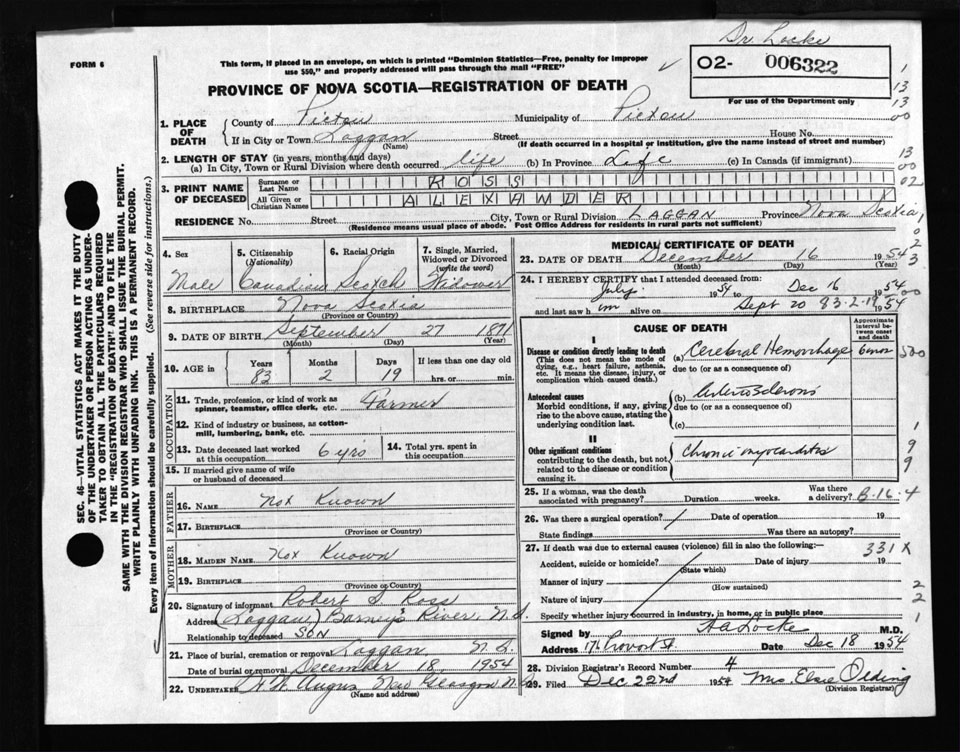 Dr. Locke
FORM 6
This form, if placed in an envelope, on which is printed "Dominion Statistics—Free, penalty for improper
use $50," and properly addressed will pass through the mail "FREE"
02- 006322
For use of the Department only
PROVINCE OF NOVA SCOTIA—REGISTRATION OF DEATH
1. PLACE OF DEATH
County of Pictou Municipality of Pictou
If in City or Town Laggan Street House No.
(Name) (If death occurred in a hospital or institution, give the name instead of street and number)
2. LENGTH OF STAY (in years, months and days)
(a) In City, Town or Rural Division where death occurred life (b) In Province Life (c) In Canada (if immigrant)
3. PRINT NAME OF DECEASED
Surname or Last Name ROSS
All Given or Christian Names ALEXANDER
RESIDENCE No. Street City, Town or Rural Division LAGGAN Province Nova Scotia
(Residence means usual place of abode. Post Office Address for residents in rural parts not sufficient)
4. Sex Male
5. Citizenship (Nationality) Canadian
6. Racial Origin Scotch
7. Single, Married, Widowed or Divorced (write the word) Widower
8. BIRTHPLACE Nova Scotia
(Province or Country)
9. DATE OF BIRTH September 27 1871
(Month) (Day) (Year)
10. AGE in Years 83 Months 2 Days 19 If less than one day old hrs. or min.
OCCUPATION
11. Trade, profession, or kind of work as spinner, teamster, office clerk, etc. Farmer
12. Kind of industry or business, as cotton-mill, lumbering, bank, etc.
13. Date deceased last worked at this occupation 6 yrs
14. Total yrs. spent in this occupation
15. If married give name of wife or husband of deceased
FATHER
16. Name Not Known
17. Birthplace
(Province or Country)
MOTHER
18. Maiden Name Not Known
19. Birthplace
(Province or Country)
20. Signature of informant Robert S Ross
Address (Laggan) Barney's River, N.S.
Relationship to deceased SON
21. Place of burial, cremation or removal Laggan, N.S.
Date of burial or removal December 18 1954
22. Undertaker H.W. Angus New Glasgow N.S.
(Name and address)
MEDICAL CERTIFICATE OF DEATH
23. DATE OF DEATH December 16 1954
(Month) (Day) (Year)
24. I HEREBY CERTIFY that I attended deceased from:
July 1954 to Dec 16 1954
and last saw him alive on Sept 20 83-2-19 1954
CAUSE OF DEATH
Approximate interval between onset and death
I
Disease or condition directly leading to death
(This does not mean the mode of dying, e.g., heart failure, asthenia, etc. It means the disease, injury, or complication which caused death.)
(a) Cerebral Hemorrhage 6 mos
due to (or as a consequence of)
Antecedent causes
Morbid conditions, if any, giving rise to the above cause, stating the underlying condition last.
(b) Arteriosclerosis
due to (or as a consequence of)
(c)
II
Other significant conditions
contributing to the death, but not related to the disease or condition causing it.
Chronic myocarditis
25. If a woman, was the death associated with pregnancy? Duration weeks. Was there a delivery? B-16-4
26. Was there a surgical operation? Date of operation 19
State findings Was there an autopsy?
27. If death was due to external causes (violence) fill in also the following:— 331 X
Accident, suicide or homicide? Date of injury 19
(State which)
Manner of injury
(How sustained)
Nature of injury
Specify whether injury occurred in industry, in home, or in public place
Signed by A A Locke M.D.
Address 176 Provost St. Date Dec 18 1954
28. Division Registrar's Record Number 4
29. Filed Dec 22nd 1954 Mrs. Elsie Olding
(Division Registrar)
SEC. 46—VITAL STATISTICS ACT MAKES IT THE DUTY
OF THE UNDERTAKER OR PERSON ACTING AS UNDER-
TAKER TO OBTAIN ALL THE PARTICULARS REQUIRED
IN THE "REGISTRATION OF DEATH" AND TO FILE THE
SAME WITH THE DIVISION REGISTRAR WHO SHALL ISSUE THE BURIAL PERMIT.
WRITE PLAINLY WITH UNFADING INK. THIS IS A PERMANENT RECORD.
Every item of Information should be carefully supplied. (See reverse side for instructions.)
1
13
13
00
13
00
02
1
0
2
3
00
500
1
9
9
2
2
1